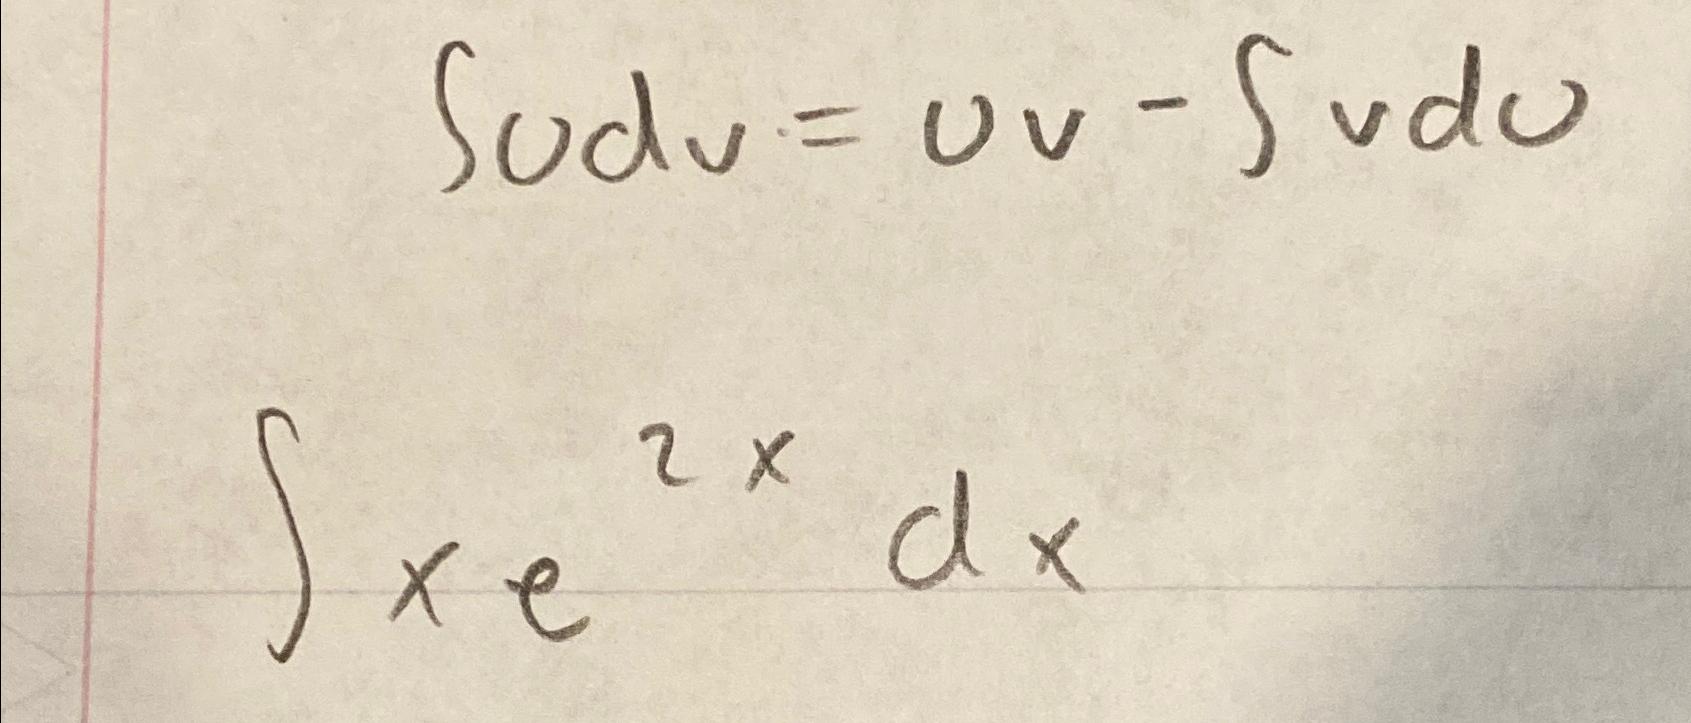 ∫udv = uv - ∫vdu
∫xe²ˣ dx